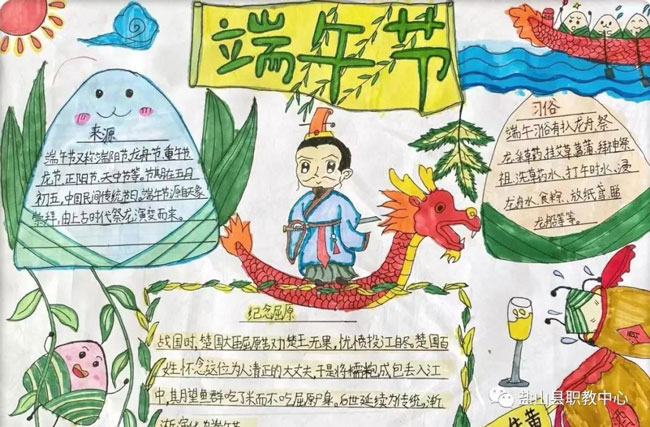 端午节
来源
端午节又称端阳节、龙舟节、重午节、
龙节、正阳节、天中节等,节期在五月
初五,中国民间传统节日,端午节源自天象
崇拜,由上古时代祭龙演变而来。
习俗
端午习俗有扒龙舟、祭
龙、采草药、挂艾草菖蒲、拜神祭
祖、洗草药水、打午时水、浸
龙舟水、食粽、放纸鸢、睇
龙船等等。
纪念屈原
战国时,楚国大臣屈原为楚王无果,忧愤投江自尽,楚国百
姓怀念这位为人清正的大丈夫,于是将糯米包成包丢入江
中,其目望鱼群吃了米而不吃屈原身,后世延续为传统,渐
渐演化为端午节
黄
盐山县职教中心